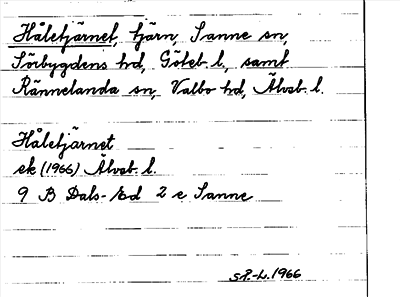 Håletjärnet, tjärn, Sanne sn,
Sörbygdens hd, Göteb. l., samt
Rännelanda sn, Valbo hd, Älvsb. l.
Håletjärnet
ek (1966) Älvsb. l.
9 B Dals-Ed 2 e Sanne
S.P.-L. 1966